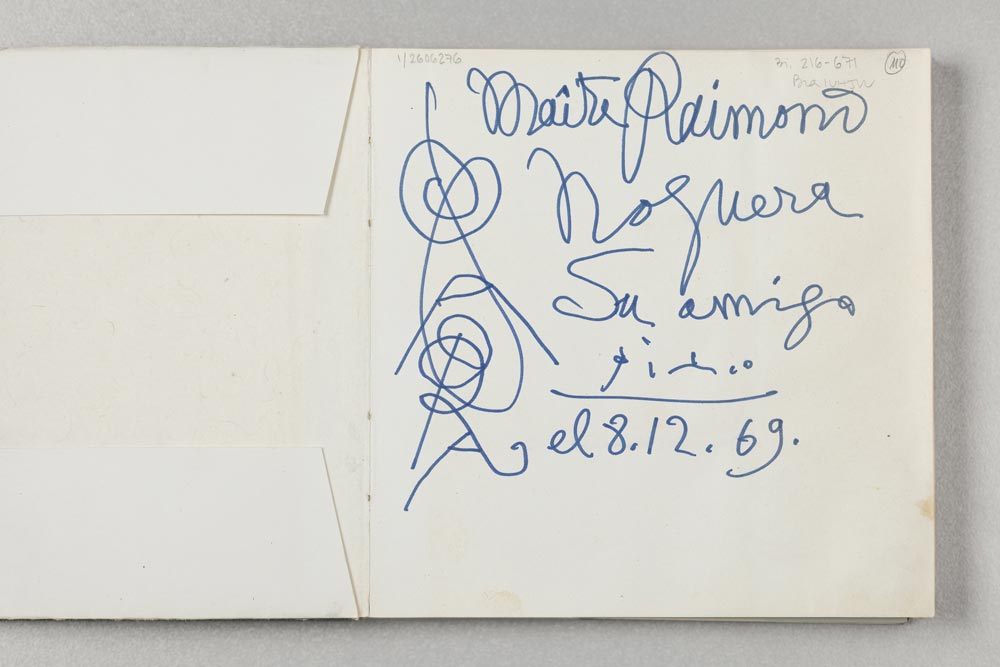 1/2606276
Bi. 216-671
Maître Raimond
Noguera
Su amigo
el 8.12.69.